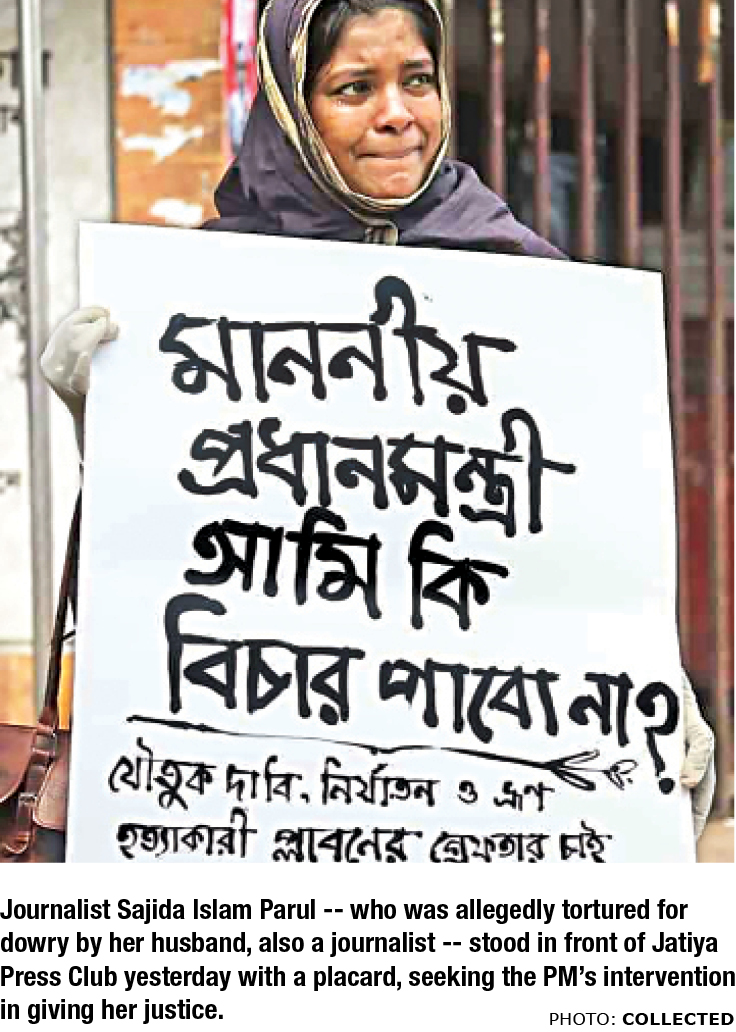 মাননীয়
প্রধানমন্ত্রী
আমি কি
বিচার পাবো না?
যৌতুক দাবি, নির্যাতন ও ভ্রূণ
হত্যাকারী প্লাবনের গ্রেফতার চাই
Journalist Sajida Islam Parul -- who was allegedly tortured for
dowry by her husband, also a journalist -- stood in front of Jatiya
Press Club yesterday with a placard, seeking the PM’s intervention
in giving her justice.
PHOTO: COLLECTED